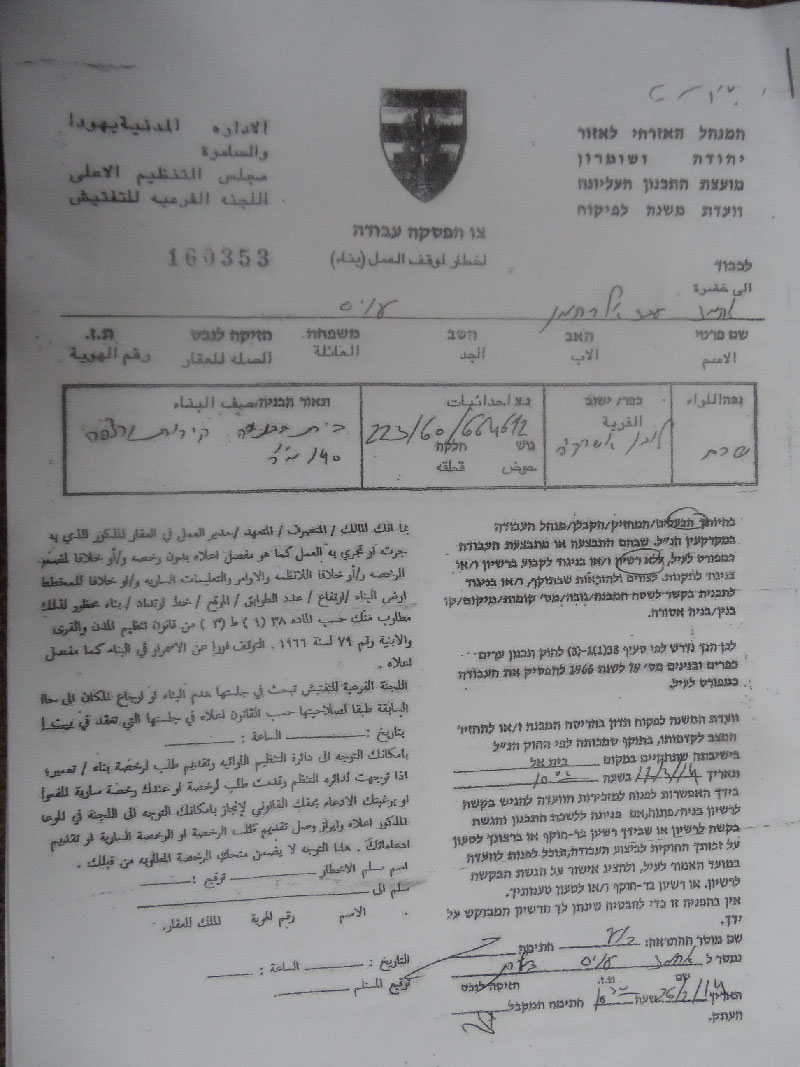 המנהל האזרחי לאזור
יהודה ושומרון
מועצת התכנון העליונה
וועדת משנה לפיקוח
الاداره المدنية يهودا
والسامرة
مجلس التنظيم الاعلى
اللجنه الفرعيه للتفتيش
צו הפסקה עבודה
اخطار لوقف العمل (بناء)
160353
לכבוד
الى حضرة
אחמד עבד אל רחמן עויס
שם פרטי האב הסב משפחה הזיקה לנכס ת.ז.
الاسم الاب الجد العائلة الصله للعقار رقم الهوية
נפה اللواء
כפר/ ישוב
القرية
נ.צ احداثيات
223/60/664612
גוש חלקה
حوض قطعه
תאור הבניה/صيف البناء
בית בבניה קירות
140 מ"ר
בהיותך הבעלים/המחזיק/הקבלן/מנהל העבודה
במקרקעין הנ"ל, שבהם התבצעה או מתבצעת העבודה
המפורט לעיל, ללא רשיון ו/או בניגוד לקבוע ברשיון ו/או
בניגוד לתקנות, לצווים ולהוראות שבתוקף, ו/או בניגוד
לתכנית בקשר לשטח המבנה/גובה/מס' קומות/מיקום/קו
בנין/בניה אסורה.
לכן הנך נדרש לפי סעיף 38(1)(ג)-(3) לחוק תכנון ערים
כפרים ובנינים מס' 79 לשנת 1966 להפסיק את העבודה
כמפורט לעיל.
וועדת המשנה לפקוח תדון בהריסת המבנה ו/או להחזיר
המצב לקדמותו, בתוקף סמכותה לפי החוק הנ"ל
בישיבתה שתתקיים במקום בית אל
בתאריך 11/3/14 בשעה 10:00
בידך האפשרות לפנות למזכירות הוועדה להגיש בקשה
לרשיון בניה/פתוח, אם פנית ללשכת התכנון והגשת
בקשה לרשיון או שבידך רשיון בר-תוקף או ברצונך לטעון
על זכותך החוקית לביצוע העבודה, תוכל לפנות לוועדה
במועד האמור לעיל, ולהציג אישור על הגשת הבקשה
לרשיון, או רשיון בר-תוקף ו/או לטעון טענותיך.
אין בהפניה זו כדי להבטיח שינתן לך הרשיון המבוקש על
ידך.
שם מוסר ההתראה: חתימה
נמסר ל אחמד עויס
שם ת.ז. הזיקה לנכס
תאריך 26/2/14 שעה חתימה המקבל
העתק.
بما انك المالك / المتصرف / المتعهد / مدير العمل في العقار المذكور الذي به
جرت او تجري به العمل كما هو مفصل اعلاه بدون رخصه و/أو خلافا لقسم
الرخصه و/أو خلافا للانظمه والاوامر والتعليمات الساريه و/او خلافا للمخطط
ارض البناء / ارتفاع / عدد الطوابق / الموقع / خط ارتداد / بناء محظور لذلك
مطلوب منك حسب الماده ٣٨ (١) ط (٣) من قانون تنظيم المدن والقرى
والابنية رقم ٧٩ لسنة ١٩٦٦. التوقف فورا عن الاستمرار في البناء كما مفصل
اعلاه.
اللجنة الفرعية للتفتيش تبحث في جلستها هدم البناء او ارجاع المكان الى حاله
السابقة طبقا لصلاحيتها حسب القانون اعلاه في جلستها التي تعقد في بيت ا
بتاريخ: الساعة:
بامكانك التوجه الى دائرة التنظيم اللوائيه وتقديم طلب لرخصة بناء / تعمير،
اذا توجهت لدائره التنظيم وقدمت طلب لرخصة او عندك رخصة سارية المفعول
او برغبتك الادعاء بحقك القانوني لإنجاز بامكانك التوجه الى اللجنة في الموعد
المذكور اعلاه وابراز وصل تقديم طلب الرخصة او الرخصة السارية او تقديم
ادعاءاتك. هذا التوجه لا يضمن منحك الرخصة المطلوبه من قبلك.
اسم مسلم الاخطار توقيع:
سلم الى
الاسم رقم الهوية المالك للعقار.
التاريخ: الساعة:
توقيع المستلم